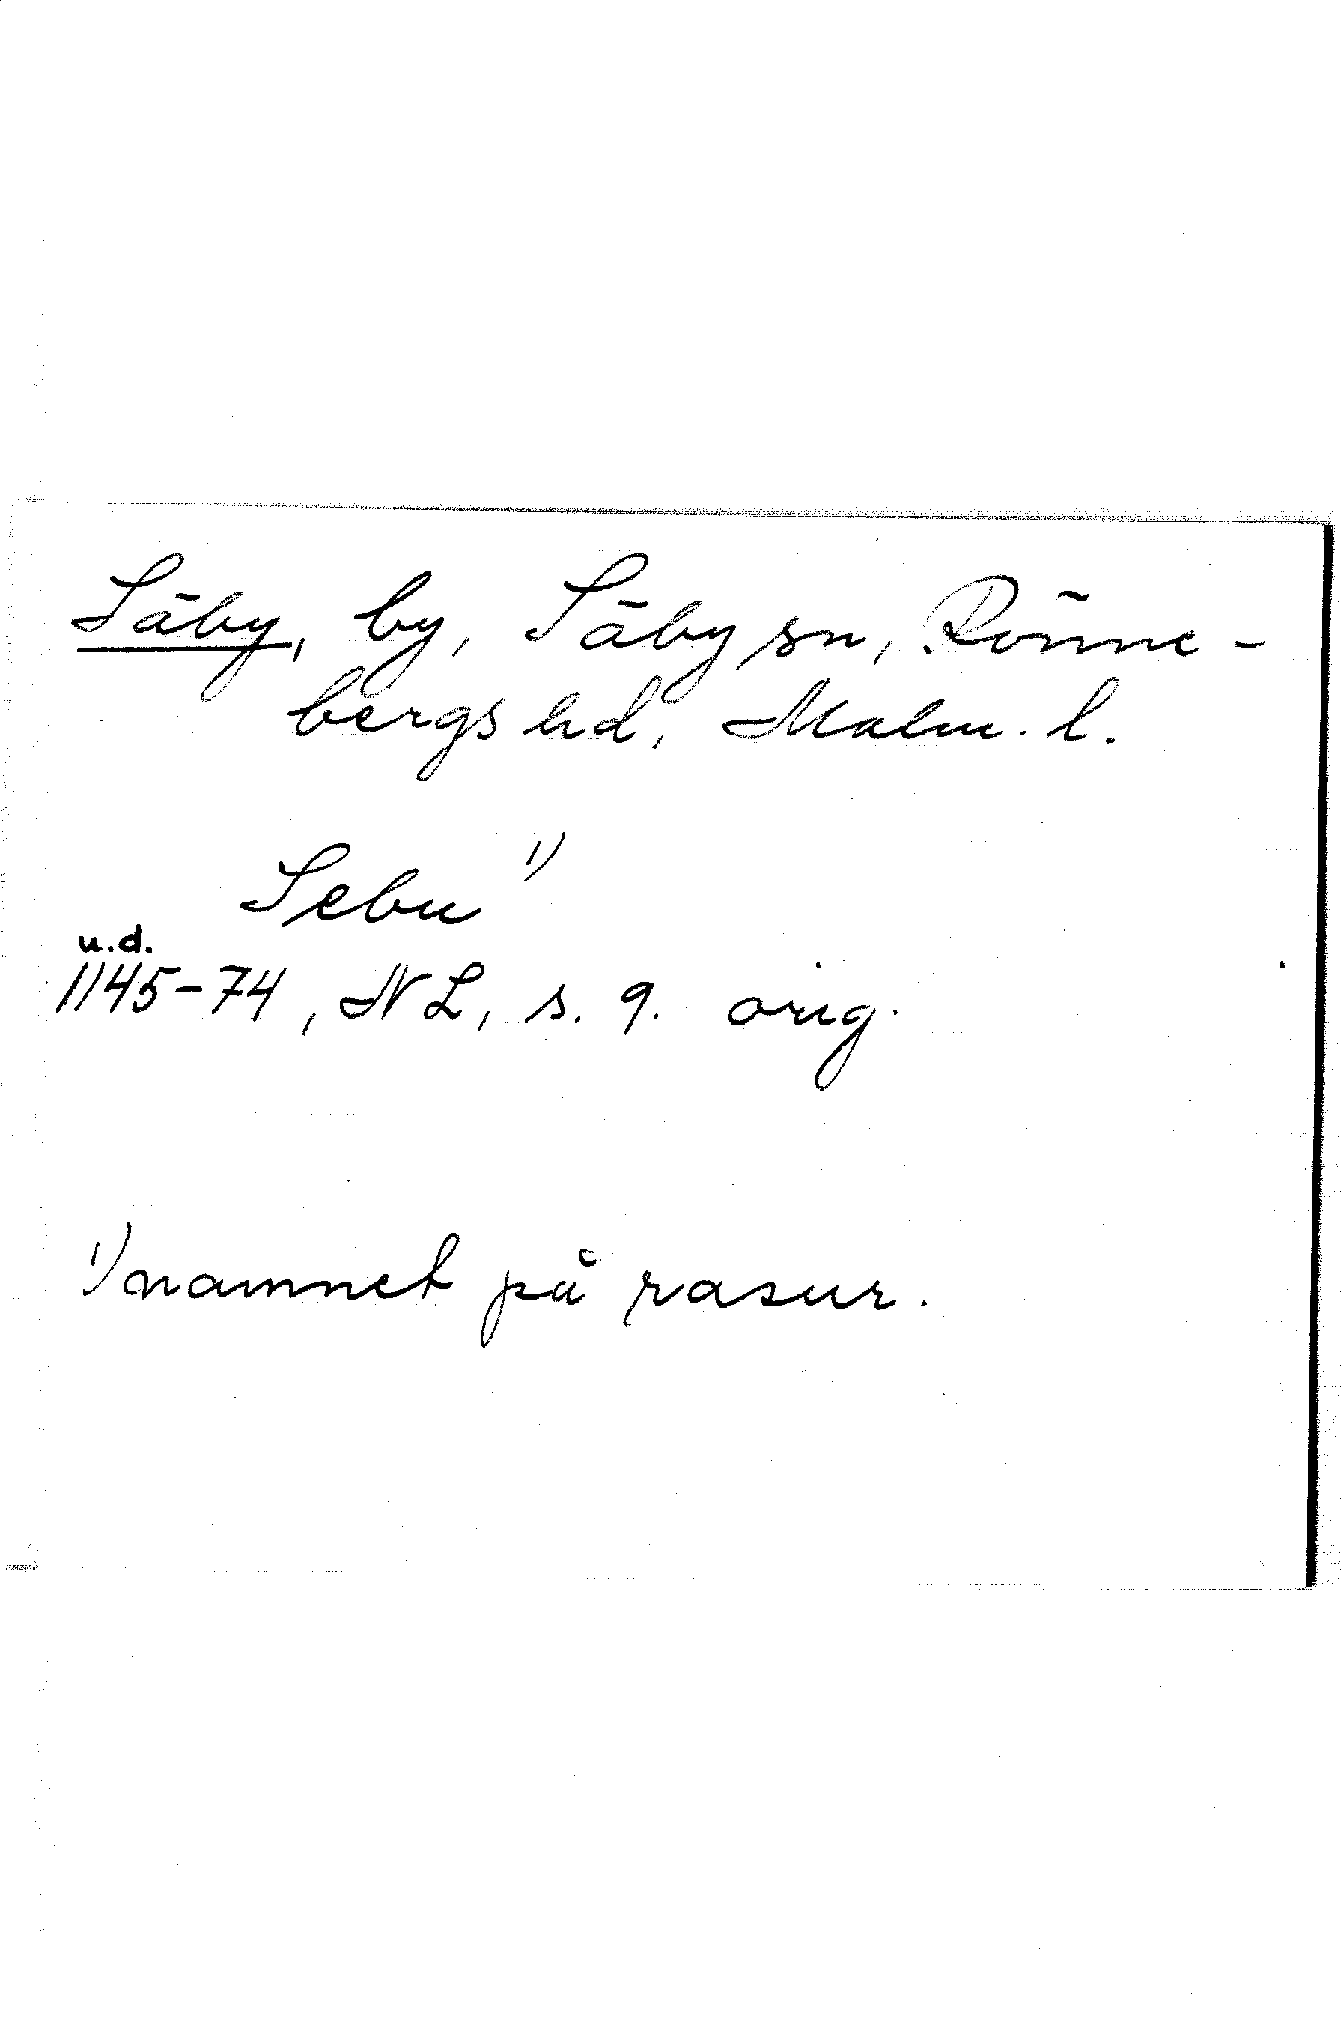 Säby, by, Säby sn, Rönne-
bergs hd, Malm. l.
Sebu 1)
u.d.
1145-74, NL, s. 9. orig.
1) namnet på rasur.